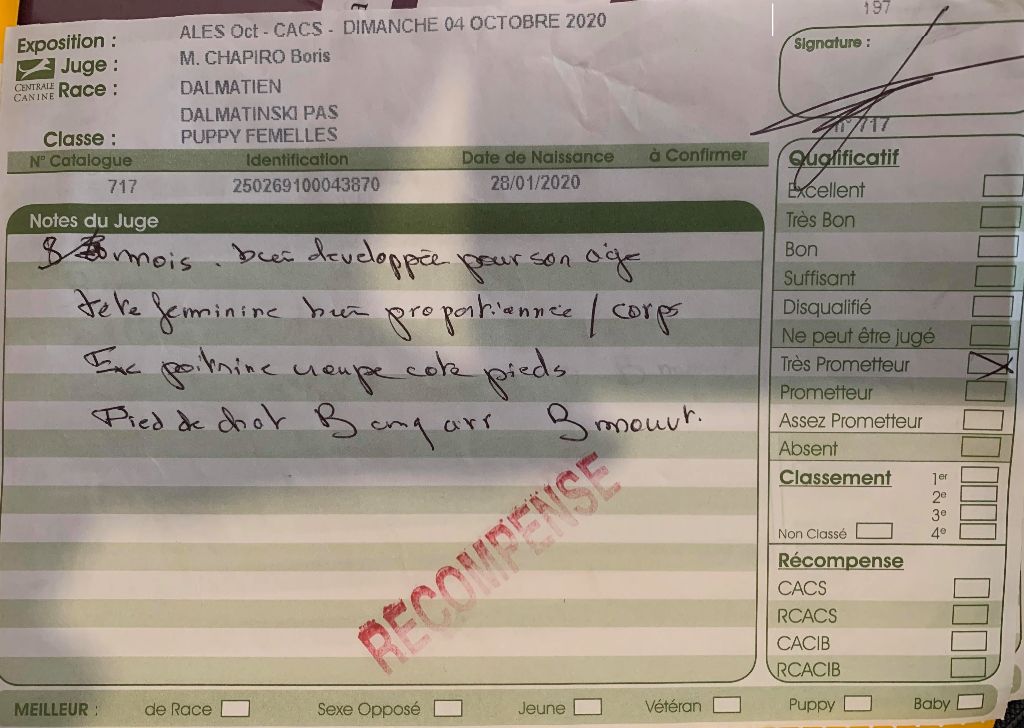 197
Exposition : ALES Oct - CACS - DIMANCHE 04 OCTOBRE 2020
Juge : M. CHAPIRO Boris
CENTRALE CANINE
Race : DALMATIEN
DALMATINSKI PAS
Classe : PUPPY FEMELLES
Signature :
n° 717
N° Catalogue Identification Date de Naissance à Confirmer
717 250269100043870 28/01/2020
Notes du Juge
8 mois. bien developpée pour son age
tete feminine bien proportionnée / corps
Exc poitrine pieds
Pied de chat B ang arr B mouvt.
RECOMPENSE
Qualificatif
Excellent
Très Bon
Bon
Suffisant
Disqualifié
Ne peut être jugé
Très Prometteur
Prometteur
Assez Prometteur
Absent
Classement 1er
2e
3e
Non Classé 4e
Récompense
CACS
RCACS
CACIB
RCACIB
MEILLEUR : de Race Sexe Opposé Jeune Vétéran Puppy Baby